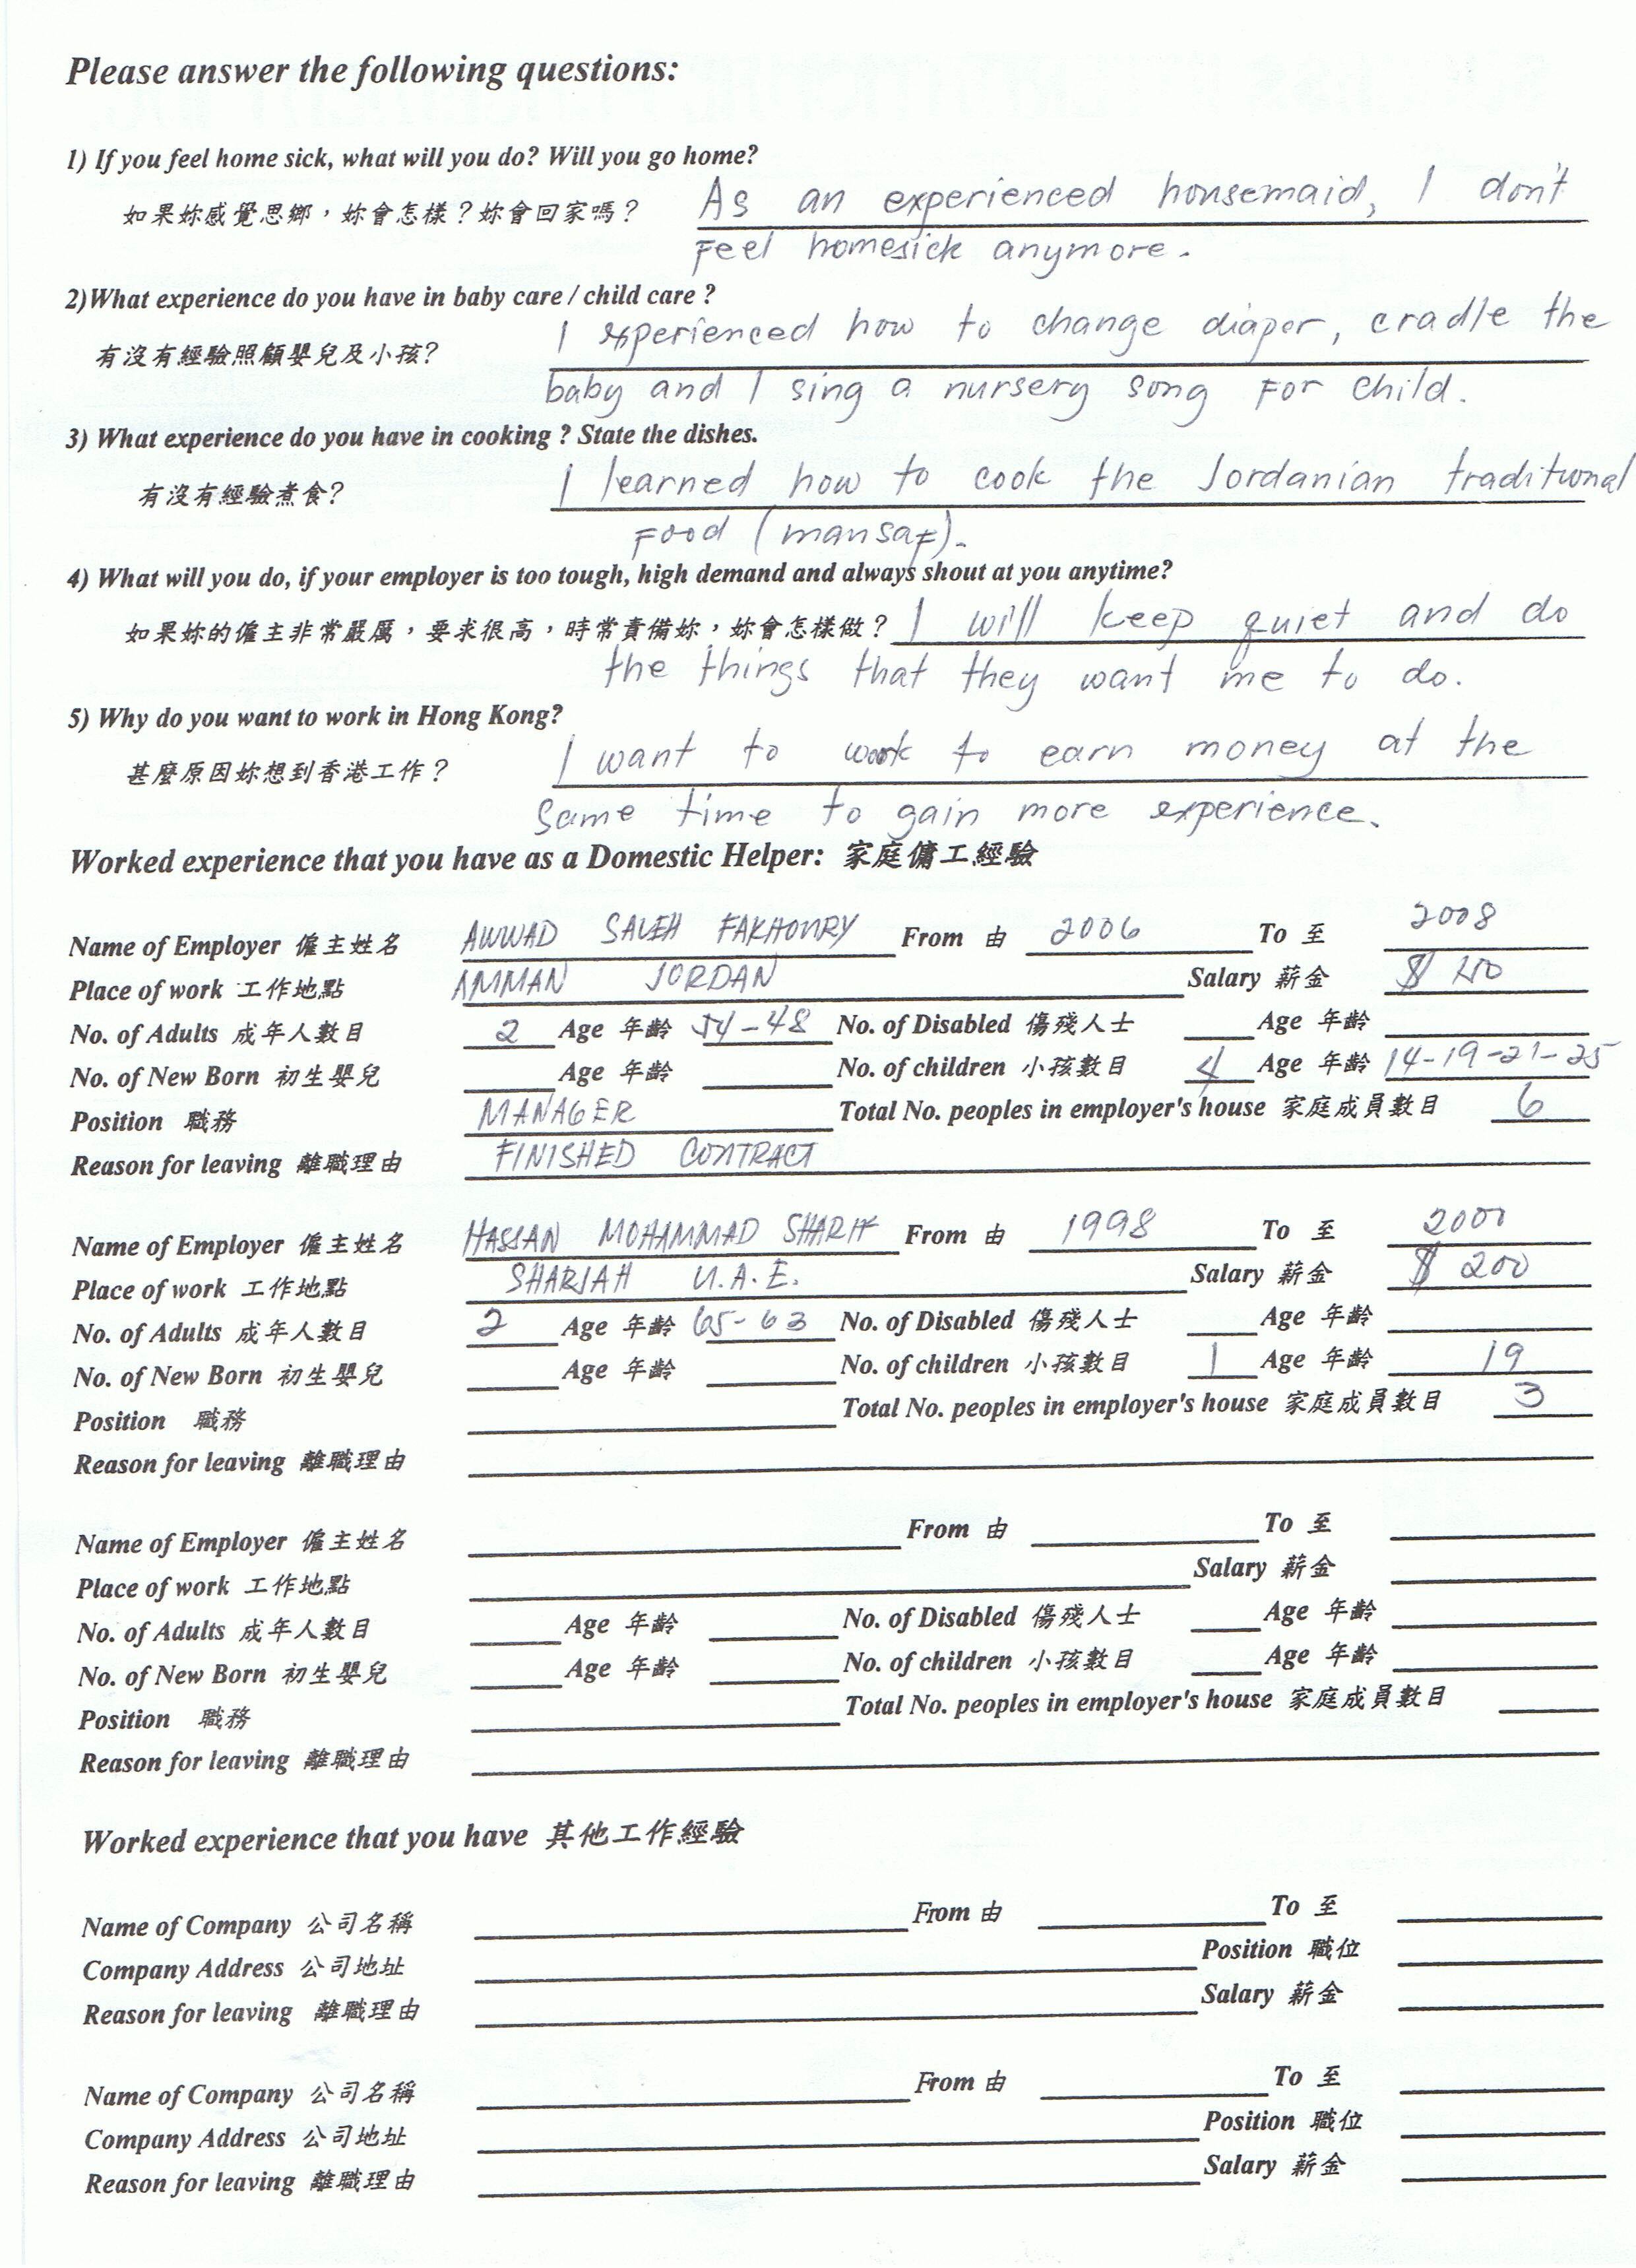 Please answer the following questions:
1) If you feel home sick, what will you do? Will you go home?
如果妳感覺思鄉，妳會怎樣？妳會回家嗎？ As an experienced housemaid, I don't
Feel homesick anymore.
2)What experience do you have in baby care / child care ?
有沒有經驗照顧嬰兒及小孩? I experienced how to change diaper, cradle the
baby and I sing a nursery song For child.
3) What experience do you have in cooking ? State the dishes.
有沒有經驗煮食? I learned how to cook the Jordanian traditional
Food (mansaf).
4) What will you do, if your employer is too tough, high demand and always shout at you anytime?
如果妳的僱主非常嚴厲，要求很高，時常責備妳，妳會怎樣做？ I will keep quiet and do
the things that they want me to do.
5) Why do you want to work in Hong Kong?
甚麼原因妳想到香港工作？ I want to work to earn money at the
same time to gain more experience.
Worked experience that you have as a Domestic Helper: 家庭傭工經驗
Name of Employer 僱主姓名 AWWAD SALEH FAKHOURY From 由 2006 To 至 2008
Place of work 工作地點 AMMAN JORDAN Salary 薪金 $
No. of Adults 成年人數目 2 Age 年齡 54-48 No. of Disabled 傷殘人士 Age 年齡
No. of New Born 初生嬰兒 Age 年齡 No. of children 小孩數目 4 Age 年齡 14-19-21-25
Position 職務 MANAGER Total No. peoples in employer's house 家庭成員數目 6
Reason for leaving 離職理由 FINISHED CONTRACT
Name of Employer 僱主姓名 HASSAN MOHAMMAD SHARIF From 由 1998 To 至 2000
Place of work 工作地點 SHARJAH U.A.E. Salary 薪金 $ 200
No. of Adults 成年人數目 2 Age 年齡 65-63 No. of Disabled 傷殘人士 Age 年齡
No. of New Born 初生嬰兒 Age 年齡 No. of children 小孩數目 1 Age 年齡 19
Position 職務 Total No. peoples in employer's house 家庭成員數目 3
Reason for leaving 離職理由
Name of Employer 僱主姓名 From 由 To 至
Place of work 工作地點 Salary 薪金
No. of Adults 成年人數目 Age 年齡 No. of Disabled 傷殘人士 Age 年齡
No. of New Born 初生嬰兒 Age 年齡 No. of children 小孩數目 Age 年齡
Position 職務 Total No. peoples in employer's house 家庭成員數目
Reason for leaving 離職理由
Worked experience that you have 其他工作經驗
Name of Company 公司名稱 From 由 To 至
Company Address 公司地址 Position 職位
Reason for leaving 離職理由 Salary 薪金
Name of Company 公司名稱 From 由 To 至
Company Address 公司地址 Position 職位
Reason for leaving 離職理由 Salary 薪金